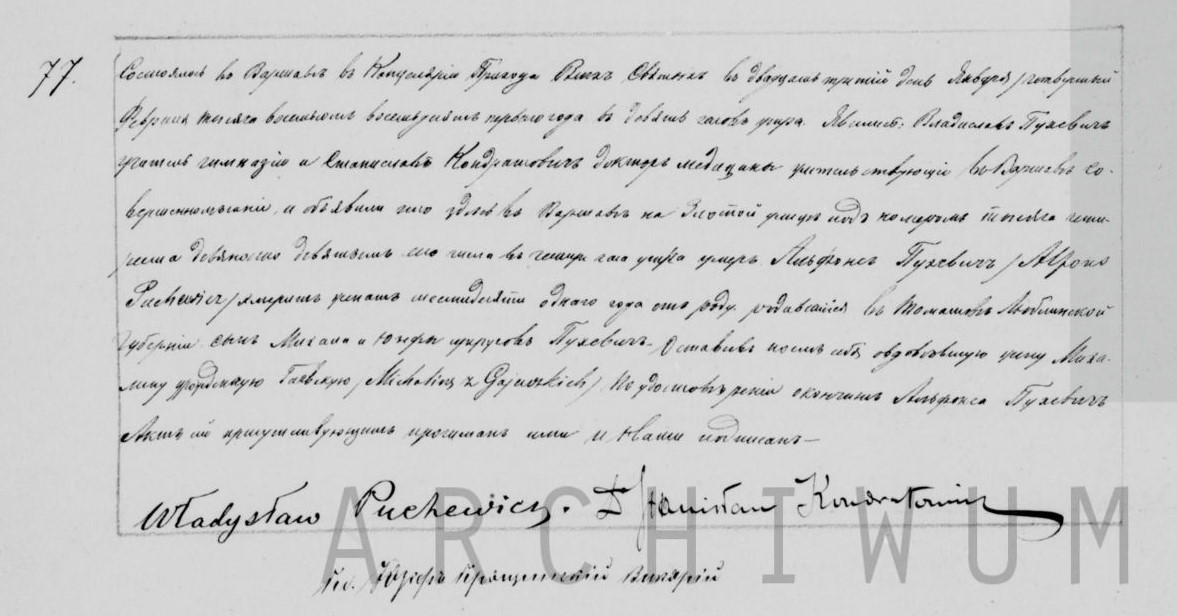 77.
Состоялось въ Варшавѣ въ Канцеляріи Прихода Всѣхъ Святыхъ въ двадцать третій день Января / четвертый
Февраля тысяча восемьсотъ восемьдесятъ перваго года въ девять часовъ утра. Явились: Владиславъ Пухевичъ
учитель гимназіи и Станиславъ Кондратовичъ докторъ медицины жительствующіе въ Варшавѣ со-
вершеннолѣтніе, и объявили что здѣсь въ Варшавѣ на Злотой улицѣ подъ номеромъ тысяча четы-
реста девяносто девятымъ сего числа въ четыре часа утра умеръ Альфонсъ Пухевичъ / Alfons
Puchewicz / шестидесяти одного года отъ роду родившійся въ Томашовѣ Люблинской
Губерніи сынъ Михаила и супруговъ Пухевичъ. Оставивъ послѣ себя овдовѣвшую жену Миха-
лину урожденную Гаевскую / Michalina z Gajewskich /. По удостовѣреніи о кончинѣ Альфонса Пухевичъ
Актъ сей присутствующимъ прочитанъ ими и Нами подписанъ —
Władysław Puchewicz. Dr Stanisław Kondratowicz
Кс. Викарій
ARCHIWUM